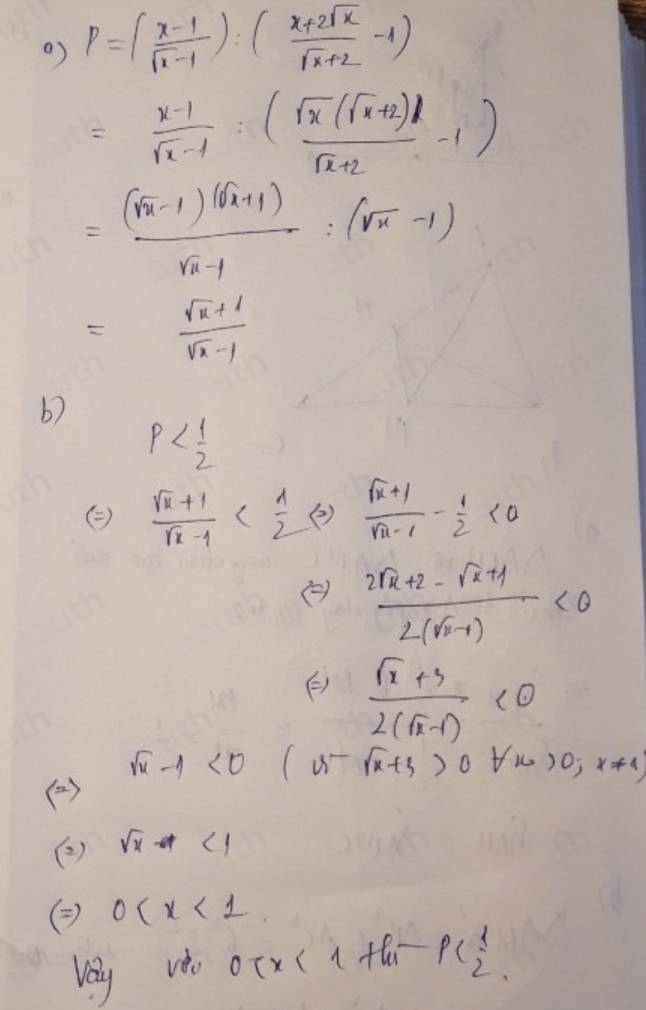 a) P = (x-1/√x-1) : (x+2√x/√x+2 - 1)
= x-1/√x-1 : (√x(√x+2)/√x+2 - 1)
= (√x-1)(√x+1)/√x-1 : (√x - 1)
= √x+1/√x-1
b)
P < 1/2
(=) √x+1/√x-1 < 1/2 (=) √x+1/√x-1 - 1/2 < 0
(=) 2√x+2 - √x+1/2(√x-1) < 0
(=) √x+3/2(√x-1) < 0
(=) √x-1 < 0 (vì √x+3 > 0 ∀x > 0; x≠1)
(=) √x < 1
(=) 0 < x < 1.
Vậy với 0 < x < 1 thì P < 1/2.